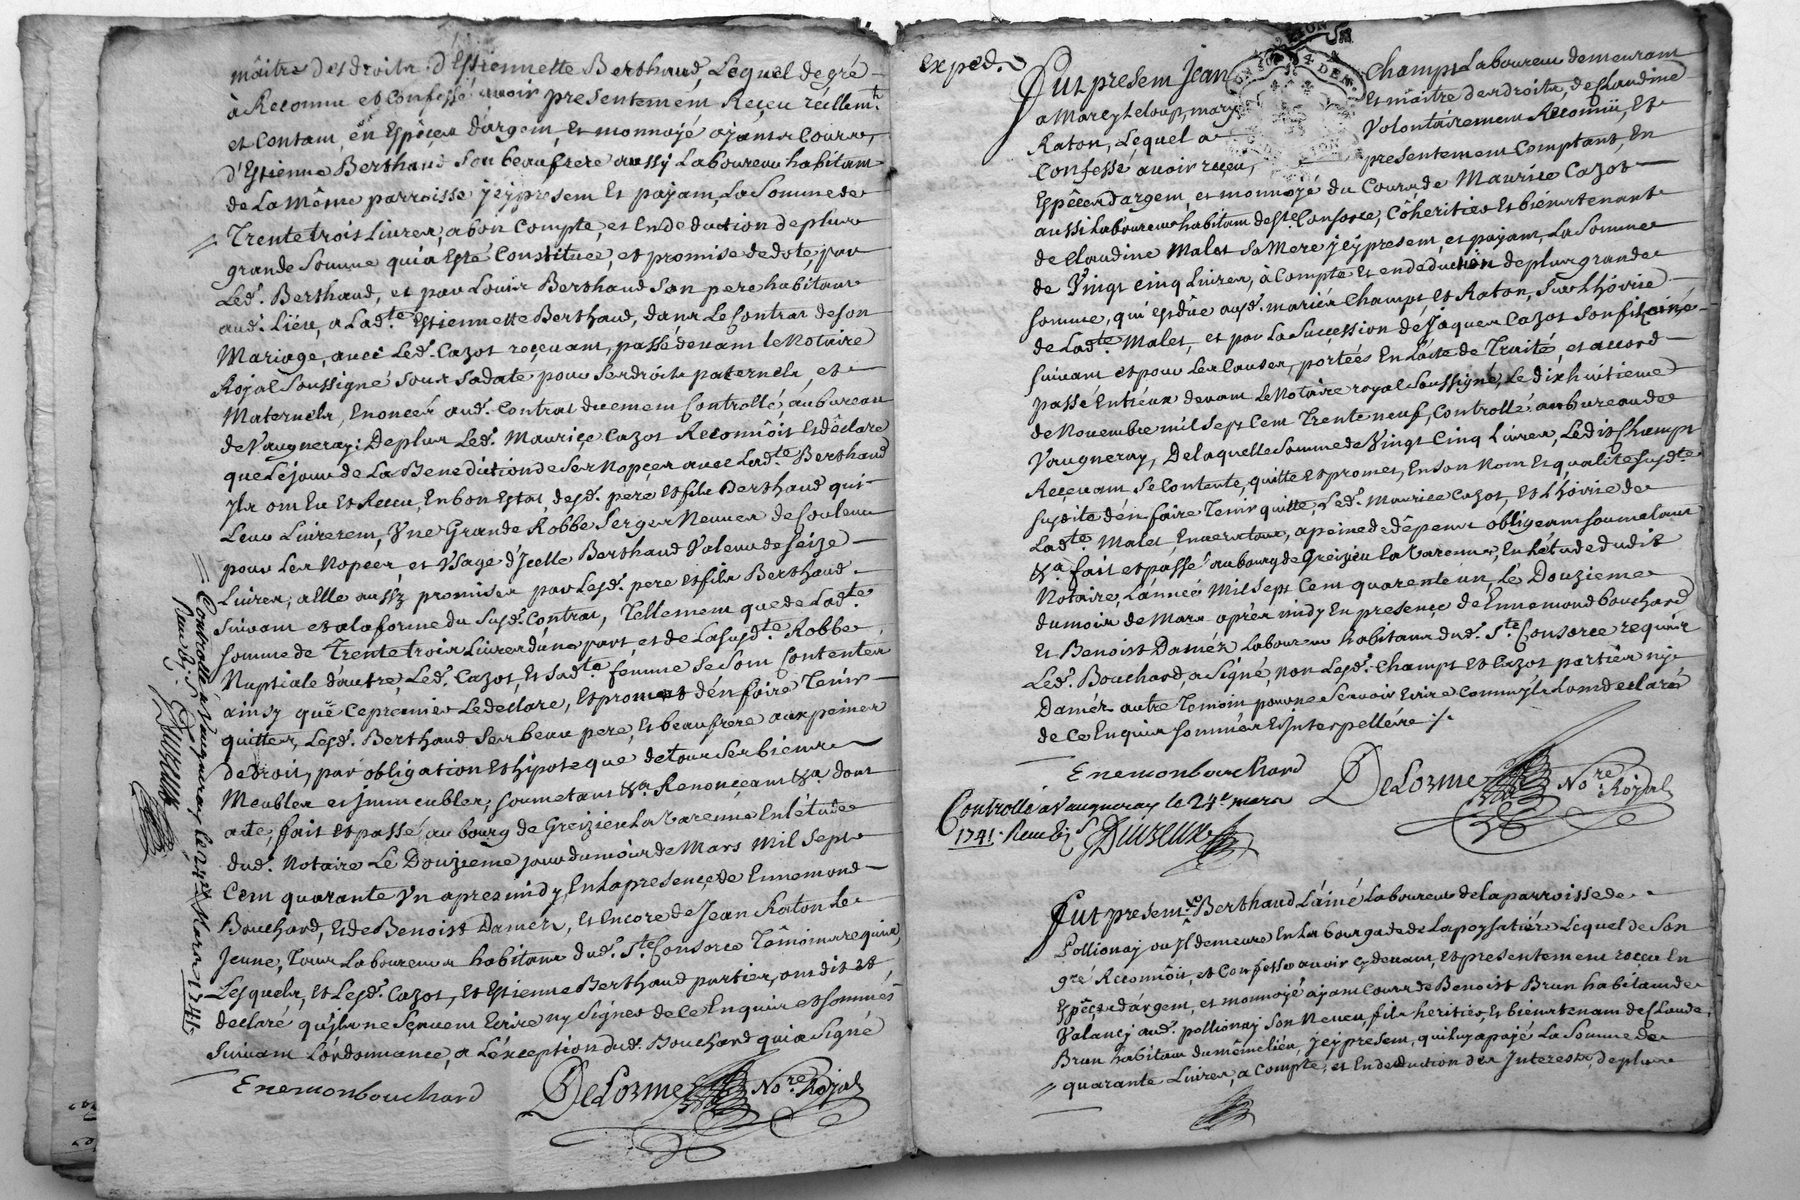 mâitre des droits d'Estiennette Berthaud, Lequel de gré
à Reconnu et Confessé avoir presentement Reçeu réellemt.
et Contant, ên Espêces d'argent, et monnoyé ayants Cours,
d'Estienne Berthaud son beaufrere aussy Laboureur habitant
de La même parroisse jcy present Et payant, La Somme de
Trente trois Livres, a bon Compte, et En deduction de plus
grande Somme qui a Esté Constituée, et promise de dote, par
Led. Berthaud, et par Louis Berthaud son pere habitant
aud. Lieu, a Ladte. Estiennette Berthaud, dans Le Contrat de son
Mariage, avec Led. Cazot reçevant, passé devant le Notaire
Royal Soussigné sous sa date pour Ses droits paternels, et
Maternels, Enoncés aud. Contrat duement Controllé, au bureau
de Vaugneray; De plus Led. Mauriçe Cazot Reconnôit Et dêclare
que Le jour de La Benediction de Ses Nopçes avec Ladte. Berthaud
jls ont Eu Et Receu, En bon Estat, desd. pere et fils Berthaud qui
Leur Livrerent, Vne Grande Robbe Serges Neuves de Couleur
pour Les Nopces, et Vsage d'jcelle Berthaud Valeur de Seize
Livres, a Elle aussy promises par Lesd. pere et fils Berthaud
Suivant et a la forme du Susd. Contrat, Tellement que de Ladte.
Somme de Trente trois Livres d'une part, et de La Susdte. Robbe
Nuptiale d'autre, Led. Cazot, Et Sadte. femme Se Sont Contentés
ainsy que Ce premier Le declare, Et promet d'en faire Tenir
quittes, Lesd. Berthaud Ses beau pere, Et beaufrere aux peines
de droit, par obligation Et hipoteque de tous Ses biens
Meubles et jmmeubles, Soumetant &a. Renonçeant &a. dont
acte, fait Et passé, au bourg de Greizieu La Varenne En L'étude
dud. Notaire Le Douzieme jour du mois de Mars Mil Sept
Cent quarante Vn apres midy, En La presençe de Ennemond
Bouchard, Et de Benoist Damés, Et Encore de Jean Raton le
Jeune, Tous Laboureurs habitans dud. Ste. Consorce Têmoins requis,
Lesquels, Et Lesd. Cazot, Et Estienne Berthaud parties, ont dit Et
declaré qu'jls ne Sçavent Ecrire ny Signer de ce Enquis et Sommés
Suivant L'ordonnance, a L'exception dud. Bouchard qui a Signé
Enemonbouchard
DeLorme Nore. Royal
Controllé a Vaugneray le 24e. Mars 1741
exped.
Fut present Jean Champt Laboureur demeurant
a Marcy Leloup, mary Et mâitre des droits, de Claudine
Raton, Lequel a Volontairement Reconnu, Et
Confessé avoir reçeu, presentement Comptant, En
Espêces d'argent, et monnoyé du Cours de Maurice Cazot
aussi Laboureur habitant de Ste. Consorce, Côheritier Et bienstenant
de Claudine Malet Sa Mere jcy present, et payant, La Somme
de Vingt Cinq Livres, à Compte Et en deduction de plus grande
Somme, qui Est dûe ausd. mariés Champt, Et Raton, Sur L'hôirie
de Ladte. Malet, et par La Succession de Jaques Cazot Son fils ainé
Suivant Et pour Les Causes, portées En L'acte de Traité, et accord
passé Entreux devant Le Notaire royal Soussigné, Le dixhuitieme
de Novembre mil Sept Cent Trente neuf, Controllé au bureau de
Vaugneray, De laquelle Somme de Vingt Cinq Livres, Ledit Champt
Recevant Se Contente, quitte Et promet, En Son Nom Et qualité Susdte.
Susdite d'en faire Tenir quitte, Led. Maurice Cazot, Et L'hôirie de
Ladte. Malet, Envers tous, a peine de dêpens obligeant Soumetant
&a. fait et passé au bourg de Greizieu La Varenne, En L'étude dudit
Notaire, L'année Mil Sept Cent quarente un, Le Douzieme
du mois de Mars aprés midy En presence de Ennemond bouchard
Et Benoist Damés Laboureurs habitans dud. Ste. Consorce requis
Led. Bouchard a Signé, non Lesd. Champt et Cazot parties ny
Damés autre Temoin pour ne Scavoir Ecrire Comm'jls L'ont declaré
de Ce Enquis Sommés Et Interpellés
Enemonbouchard
DeLorme Nore. Royal
Controllé a Vaugneray le 24e. mars
1741.
Fut present Berthaud L'ainé Laboureur de la parroisse de
Pollionay ou jl demeure En La bourgade de Lapoysatiére Lequel de Son
gré Reconnôit, et Confesse avoir cy devant, Et presentement receu En
Espêces d'argent, et monnoyé ayant Cours de Benoist Brun habitant de
Valancy aud. pollionay Son Neveu fils heritier, Et bienstenant de Claude
Brun habitant du même lieu, jcy present, qui luy a payé La Somme de
quarante Livres, a Compte, et En deduction des Interests, de plus